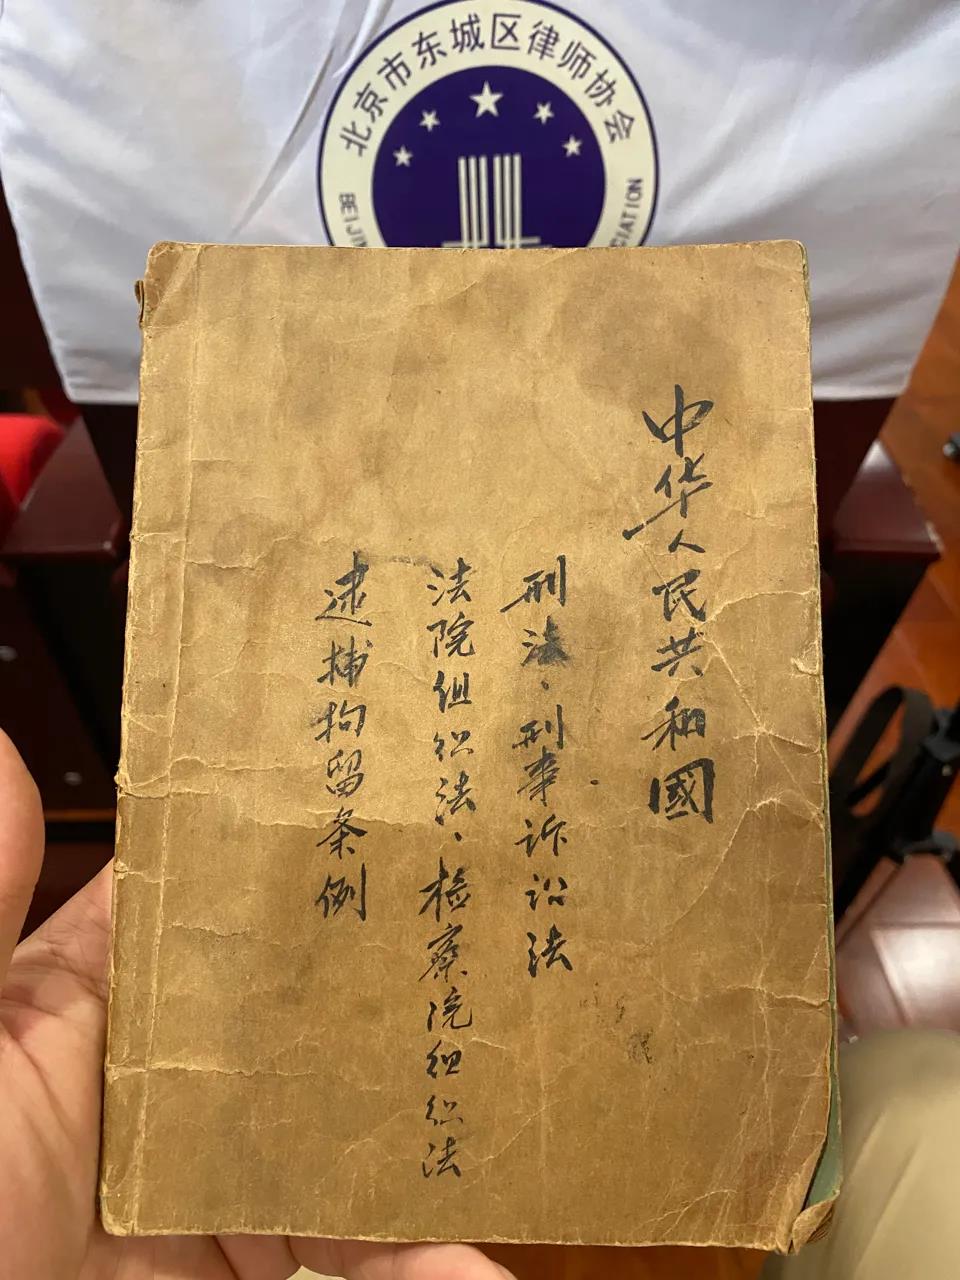 北京市东城区律师协会
BEIJI
CIATION
中华人民共和國
刑法、刑事诉讼法
法院组织法、检察院组织法
逮捕拘留条例